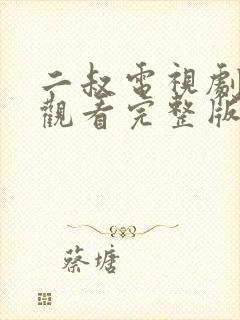 二叔電視劇
觀看完整版
蔡塘